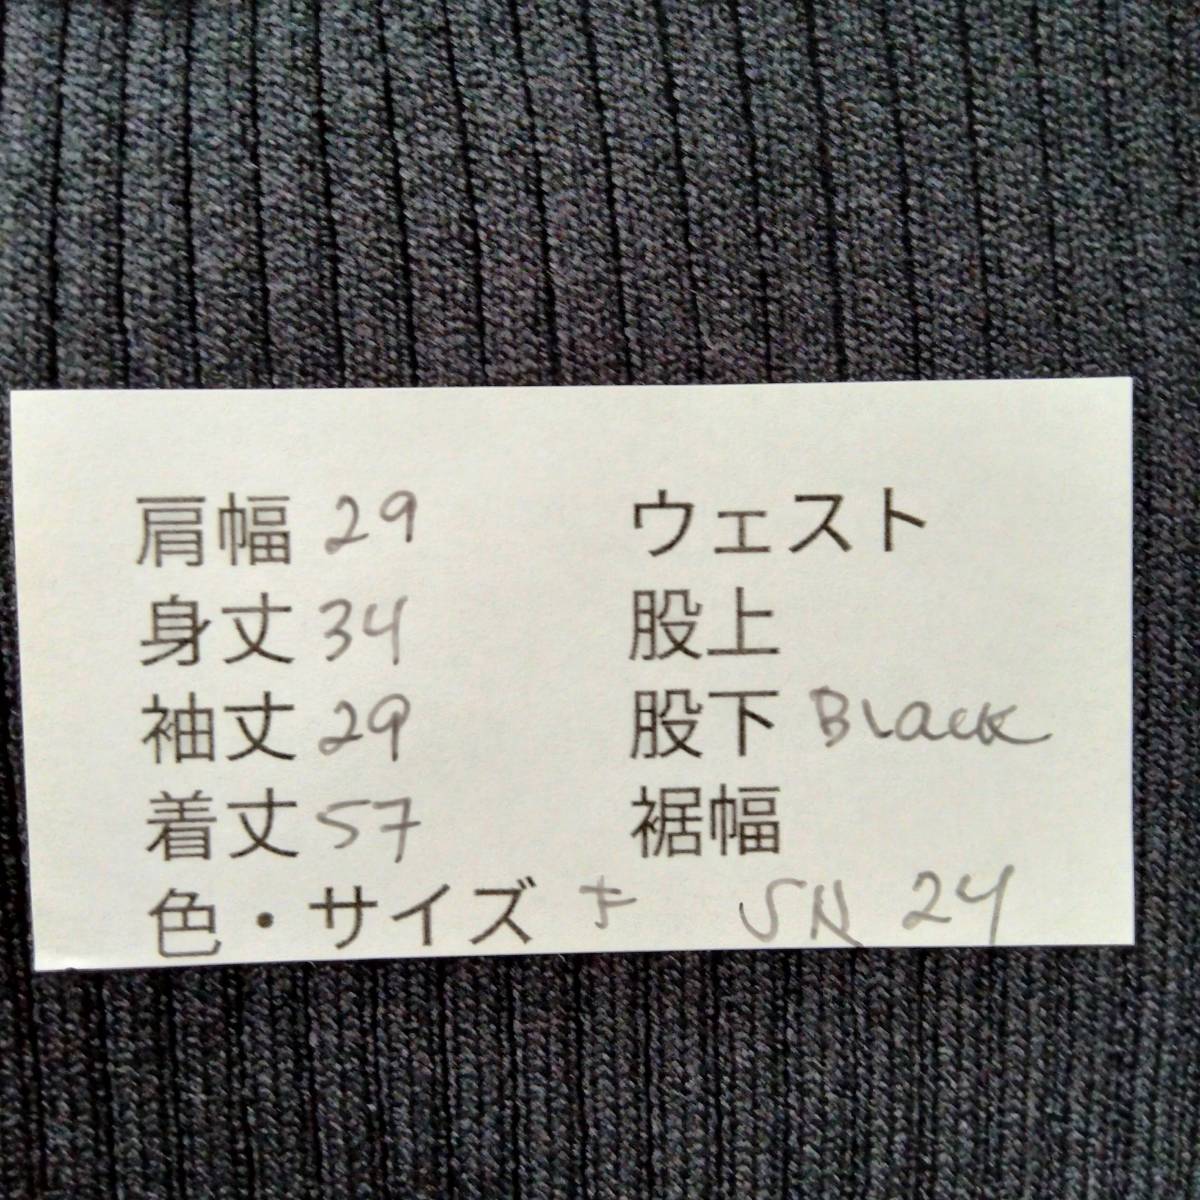 肩幅 29 ウェスト
身丈 34 股上
袖丈 29 股下 Black
着丈 57 裾幅
色・サイズ SN 24